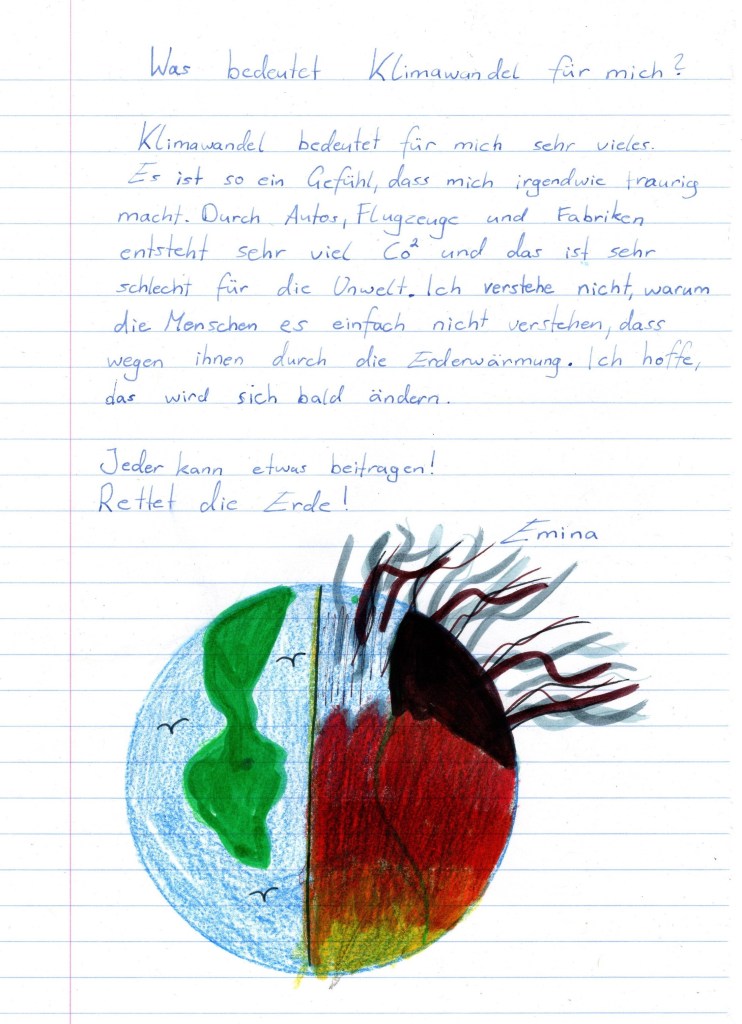 Was bedeutet Klimawandel für mich?
Klimawandel bedeutet für mich sehr vieles.
Es ist so ein Gefühl, dass mich irgendwie traurig
macht. Durch Autos, Flugzeuge und Fabriken
entsteht sehr viel Co² und das ist sehr
schlecht für die Unwelt. Ich verstehe nicht, warum
die Menschen es einfach nicht verstehen, dass
wegen ihnen durch die Erderwärmung. Ich hoffe,
das wird sich bald ändern.
Jeder kann etwas beitragen!
Rettet die Erde!
Emina